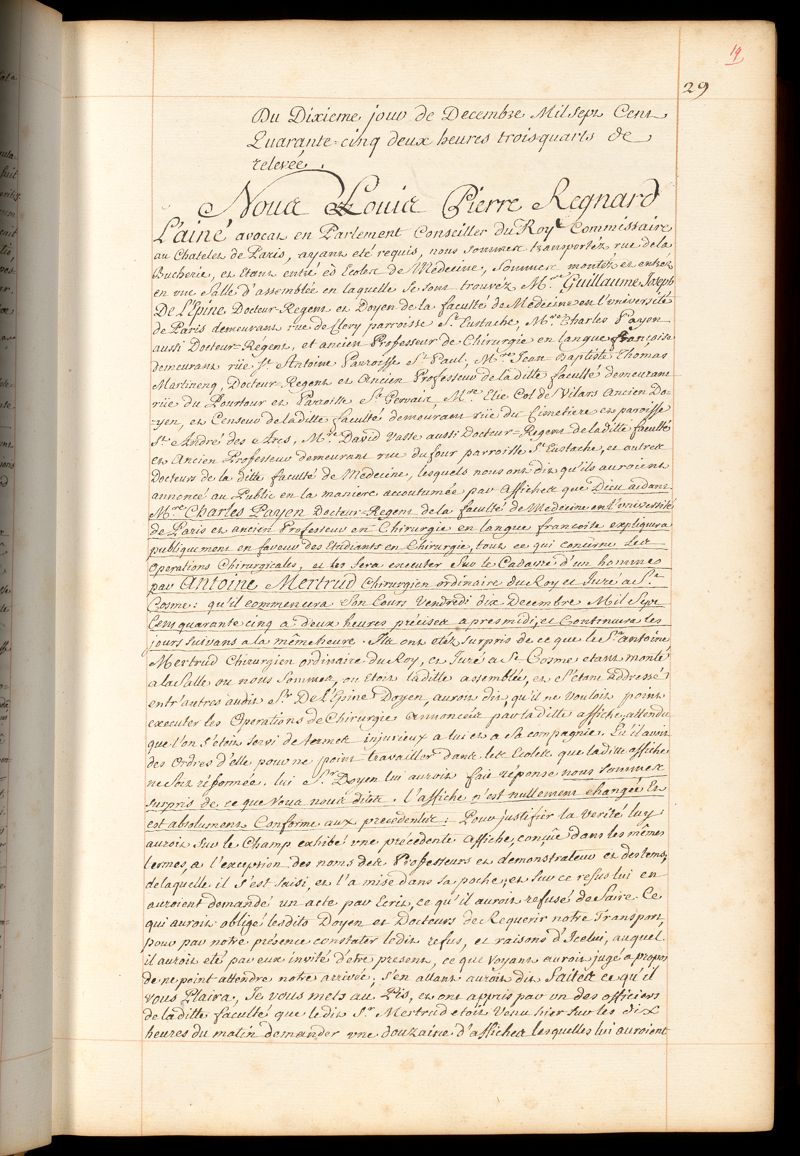 19
29
Du Dixieme jour de Decembre Mil sept Cent
Quarante-cinq deux heures trois quarts de
relevée.
Nous Louis Pierre Regnard
L'ainé avocat en Parlement Conseiller du Roy Commissaire
au Chatelet de Paris, ayant eté requis, nous sommes transportez rue de la
Bucherie, et etant entré és Ecoles de Medecine, Sommes montéz et entréz
en une Salle d'assemblée en laquelle se sont trouvez Mre Guillaume Joseph
De L'Epine Docteur Regent et Doyen de la faculté de Medecine en l'université
de Paris demeurant rue de Clery parroisse St. Eustache, Mre Charles Payen
aussi Docteur-Regent, et ancien Professeur de Chirurgie en langue françoise
demeurant rüe St Antoine Parroisse St Paul, Mre Jean Baptiste Thomas
Martineng, Docteur-Regent et Ancien Professeur de la ditte faculté demeurant
rüe du Pourtour et Parroisse St. Gervais, Mre Elie Col de Vilars Ancien Do-
yen, et Censeur de la ditte faculté demeurant rüe du Cimetiere et paroisse
St. André des Arcs, Mre David Vasse aussi Docteur-Regent de la ditte faculté
et Ancien Professeur demeurant rue du four parroisse St Eustache, et autres
Docteurs de la ditte faculté de Medecine, lesquels nous ont dit qu'ils auroient
annoncé au Public en la maniere accoutumée par affiches que Dieu aidant
Mre Charles Payen Docteur-Regent de la faculté de Medecine en l'université
de Paris et ancien Professeur en Chirurgie en langue francoise expliquera
publiquement en faveur des Etudiants en Chirurgie, tout ce qui concerne les
operations Chirurgicales, et les sera executer sur le Cadavre d'un homme
par Antoine Mertrud Chirurgien ordinaire du Roy et Juré a St.
Cosme: qu'il commencera Son Cours Vendredi dix Decembre Mil Sept
Cent quarante cinq a deux heures précises apres midi, et Continuera les
jours suivans a la même heure. Ils ont etéz surpris de ce que le Sr antoine
Mertrud Chirurgien ordinaire du Roy, et Juré a St-Cosme etant monté
a la Salle ou nous Sommes, ou etoit la ditte assemblée, et S'etant addressé
entr'autres audit Sr. De L'Epine Doyen, auroit dit, qu'il ne vouloit point
executer les Operations de Chirurgie Annoncés par la ditte affiche, attendu
que l'on s'étoit servi de termes injurieux a lui et a sa compagnie. Qu'il avoit
des Ordres d'elle pour ne point travailler dans les Ecoles que la ditte affiche
ne soit réformée. lui Sr Doyen lui auroit fait réponse nous sommes
surpris de ce que vous nous dites. l'affiche n'est nullement changée Et
est absolument Conforme aux precedentes: Pour justifier la Verité luy
auroit sur le Champ exhibé une précedente affiche, conçûe dans les mêmes
termes, a l'exception des noms des Professeurs et demonstrateur et des tems,
de laquelle il s'est saisi, et l'a mise dans sa poche; et sur ce refus lui en
auroient demandé un acte par Ecrit, ce qu'il auroit refusé de faire. Ce
qui auroit obligé lesdits Doyen et Docteurs de Requerir notre Transport,
pour par notre présence constater ledit refus, et raisons d'Icelui, auquel
il auroit eté par eux invité d'être present, ce que voyant auroit jugé a propos
de ne point attendre notre arrivée; s'en allant auroit dit Faites ce qu'il
vous Plaira, Je vous mets au Pis, et ont appris par un des officiers
de la ditte faculté que ledit Sr Mertrud etoit Venu hier sur les dix
heures du matin demander une douzaine d'affiches lesquelles lui auroient